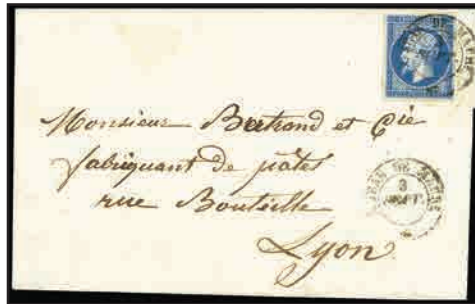 Monsieur Bertrand et Cie
fabriquant de pâtes
rue Bouteille
Lyon
3